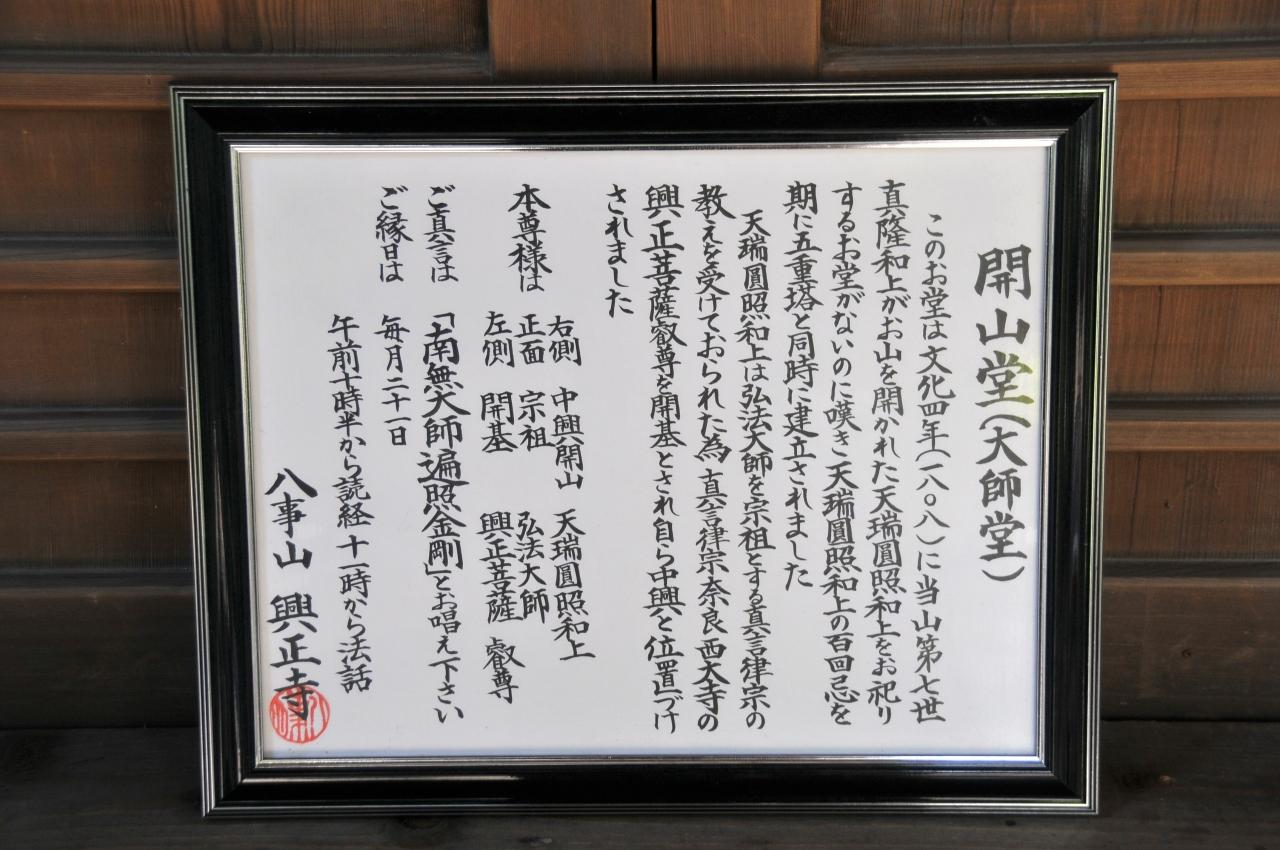 開山堂(大師堂)
このお堂は文化四年(一八〇八)に当山第七世
真隆和上がお山を開かれた天瑞圓照和上をお祀り
するお堂がないのに嘆き天瑞圓照和上の百回忌を
期に五重塔と同時に建立されました
天瑞圓照和上は弘法大師を宗祖とする真言律宗の
教えを受けておられた為真言律宗奈良西大寺の
興正菩薩叡尊を開基とされ自ら中興と位置づけ
されました
本尊様は
右側 中興開山 天瑞圓照和上
正面 宗祖 弘法大師
左側 開基 興正菩薩 叡尊
ご真言は 「南無大師遍照金剛」とお唱え下さい
ご縁日は 毎月二十一日
午前十時半から読経 十一時から法話
八事山 興正寺